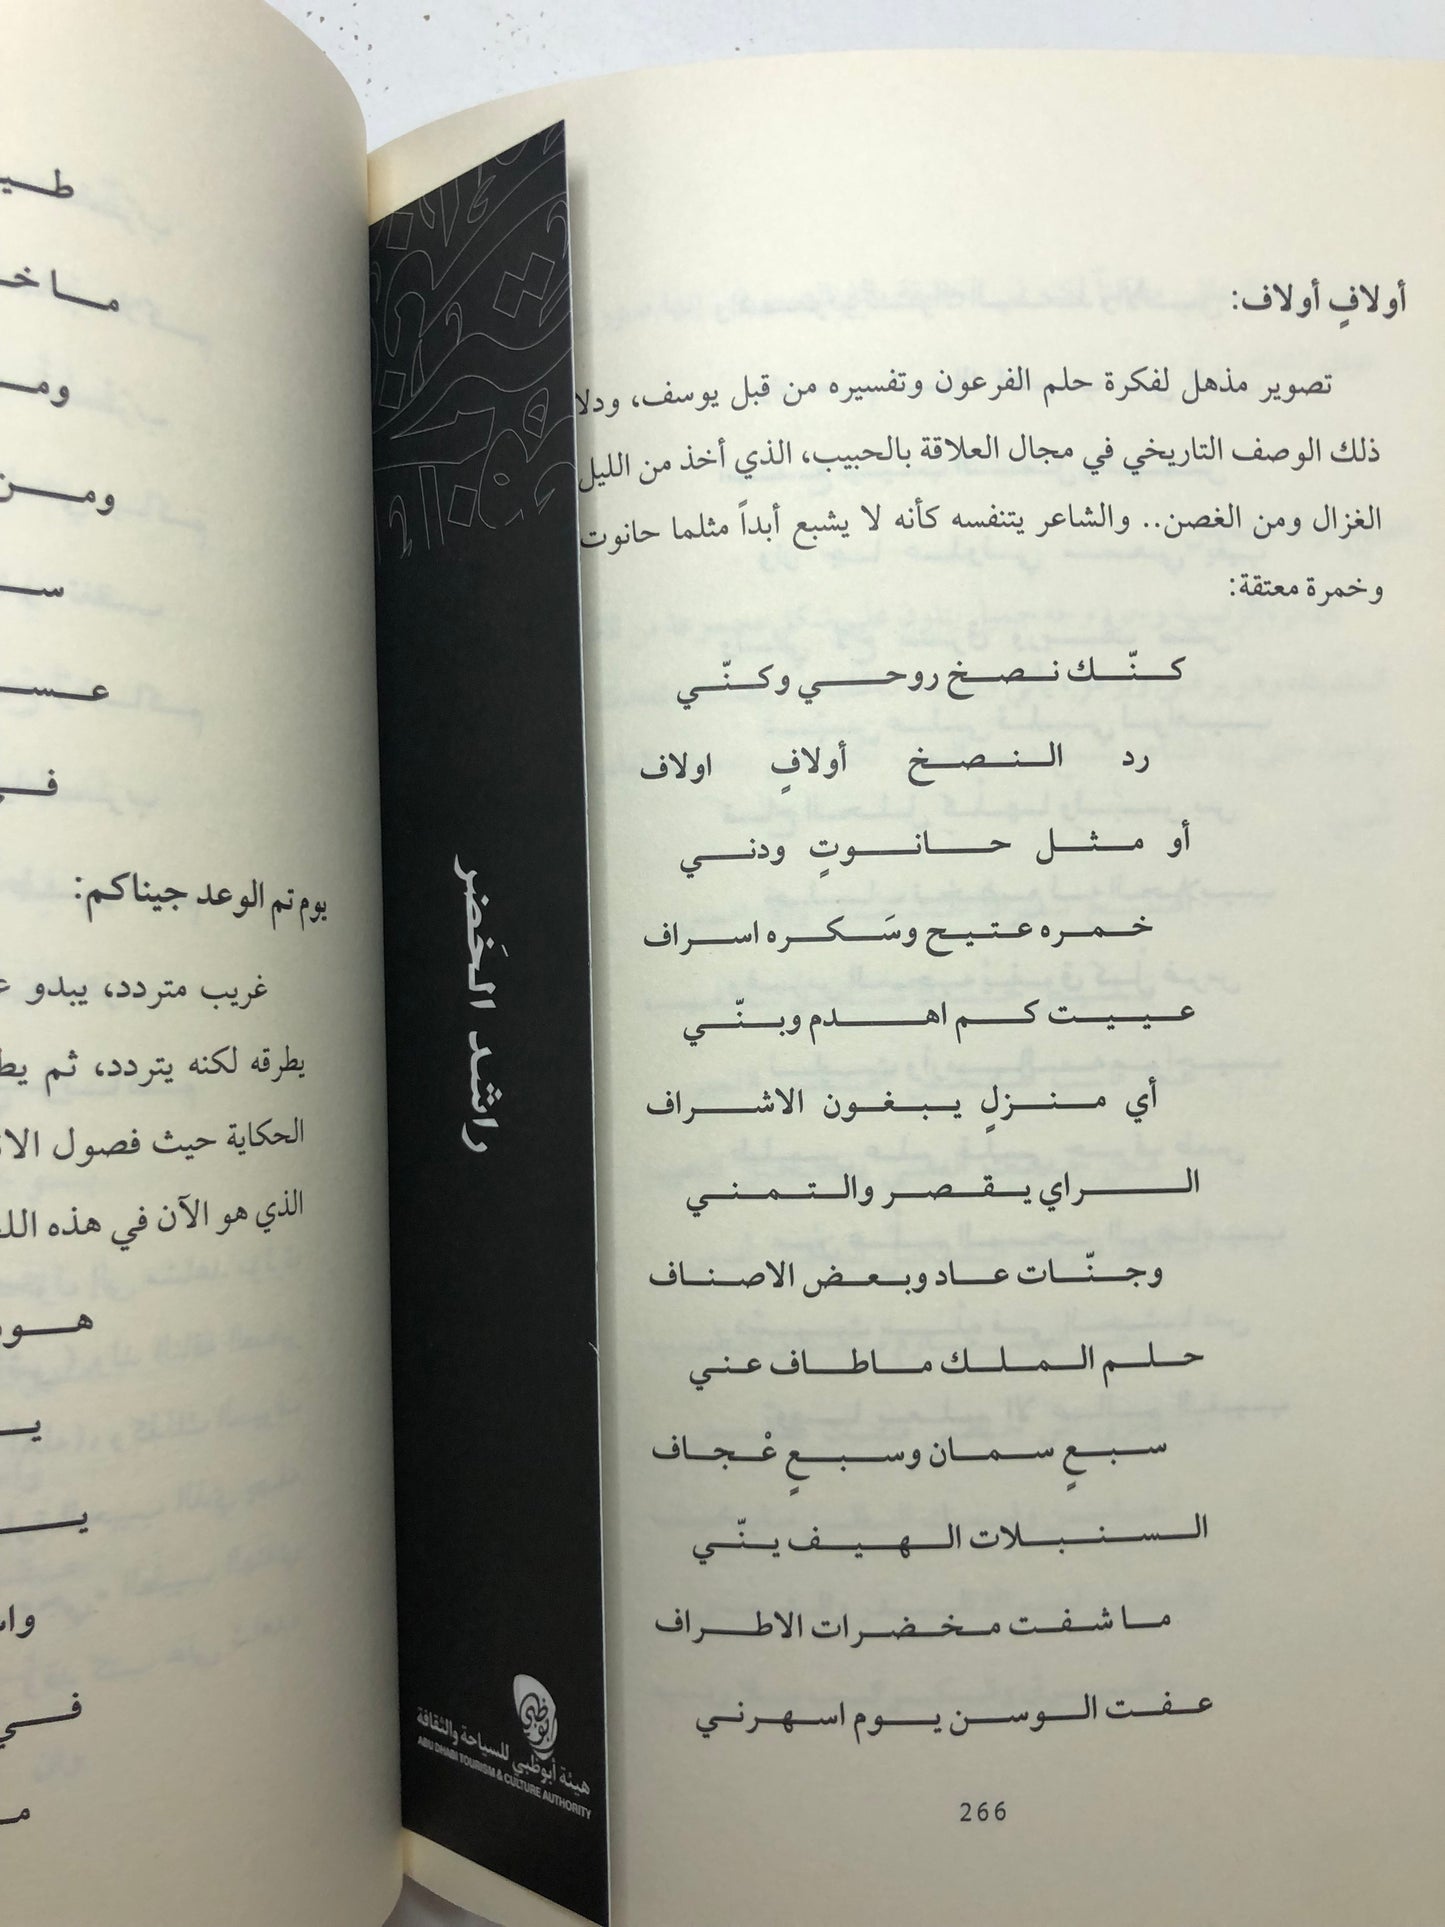 أولافٍ أولاف:
تصوير مذهل لفكرة حلم الفرعون وتفسيره من قبل يوسف،
ذلك الوصف التاريخي في مجال العلاقة بالحبيب، الذي أخذ من الليل
الغزال ومن الغصن.. والشاعر يتنفسه كأنه لا يشبع أبداً مثلما حانوت
وخمرة معتقة:
كنّك نصخ روحي وكنّي
رد النصخ أولافٍ اولاف
أو مثل حانوتٍ ودني
خمره عتيج وسَكره اسراف
عييت كم اهدم وبنّي
أي منزلٍ يبغون الاشراف
الراي يقصر والتمني
وجنّات عاد وبعض الاصناف
حلم الملك ماطاف عني
سبعٍ سمان وسبعٍ عْجاف
السنبلات الهيف ينّي
ما شفت مخضرات الاطراف
عفت الوسن يوم اسهرني
266
راشد الخَضر
أبوظبي
هيئة أبوظبي للسياحة والثقافة
ABU DHABI TOURISM & CULTURE AUTHORITY
يوم تم الوعد جيناكم:
غريب متردد، يبدو
يطرقه لكنه يتردد، ثم
الحكاية حيث فصول
الذي هو الآن في هذه